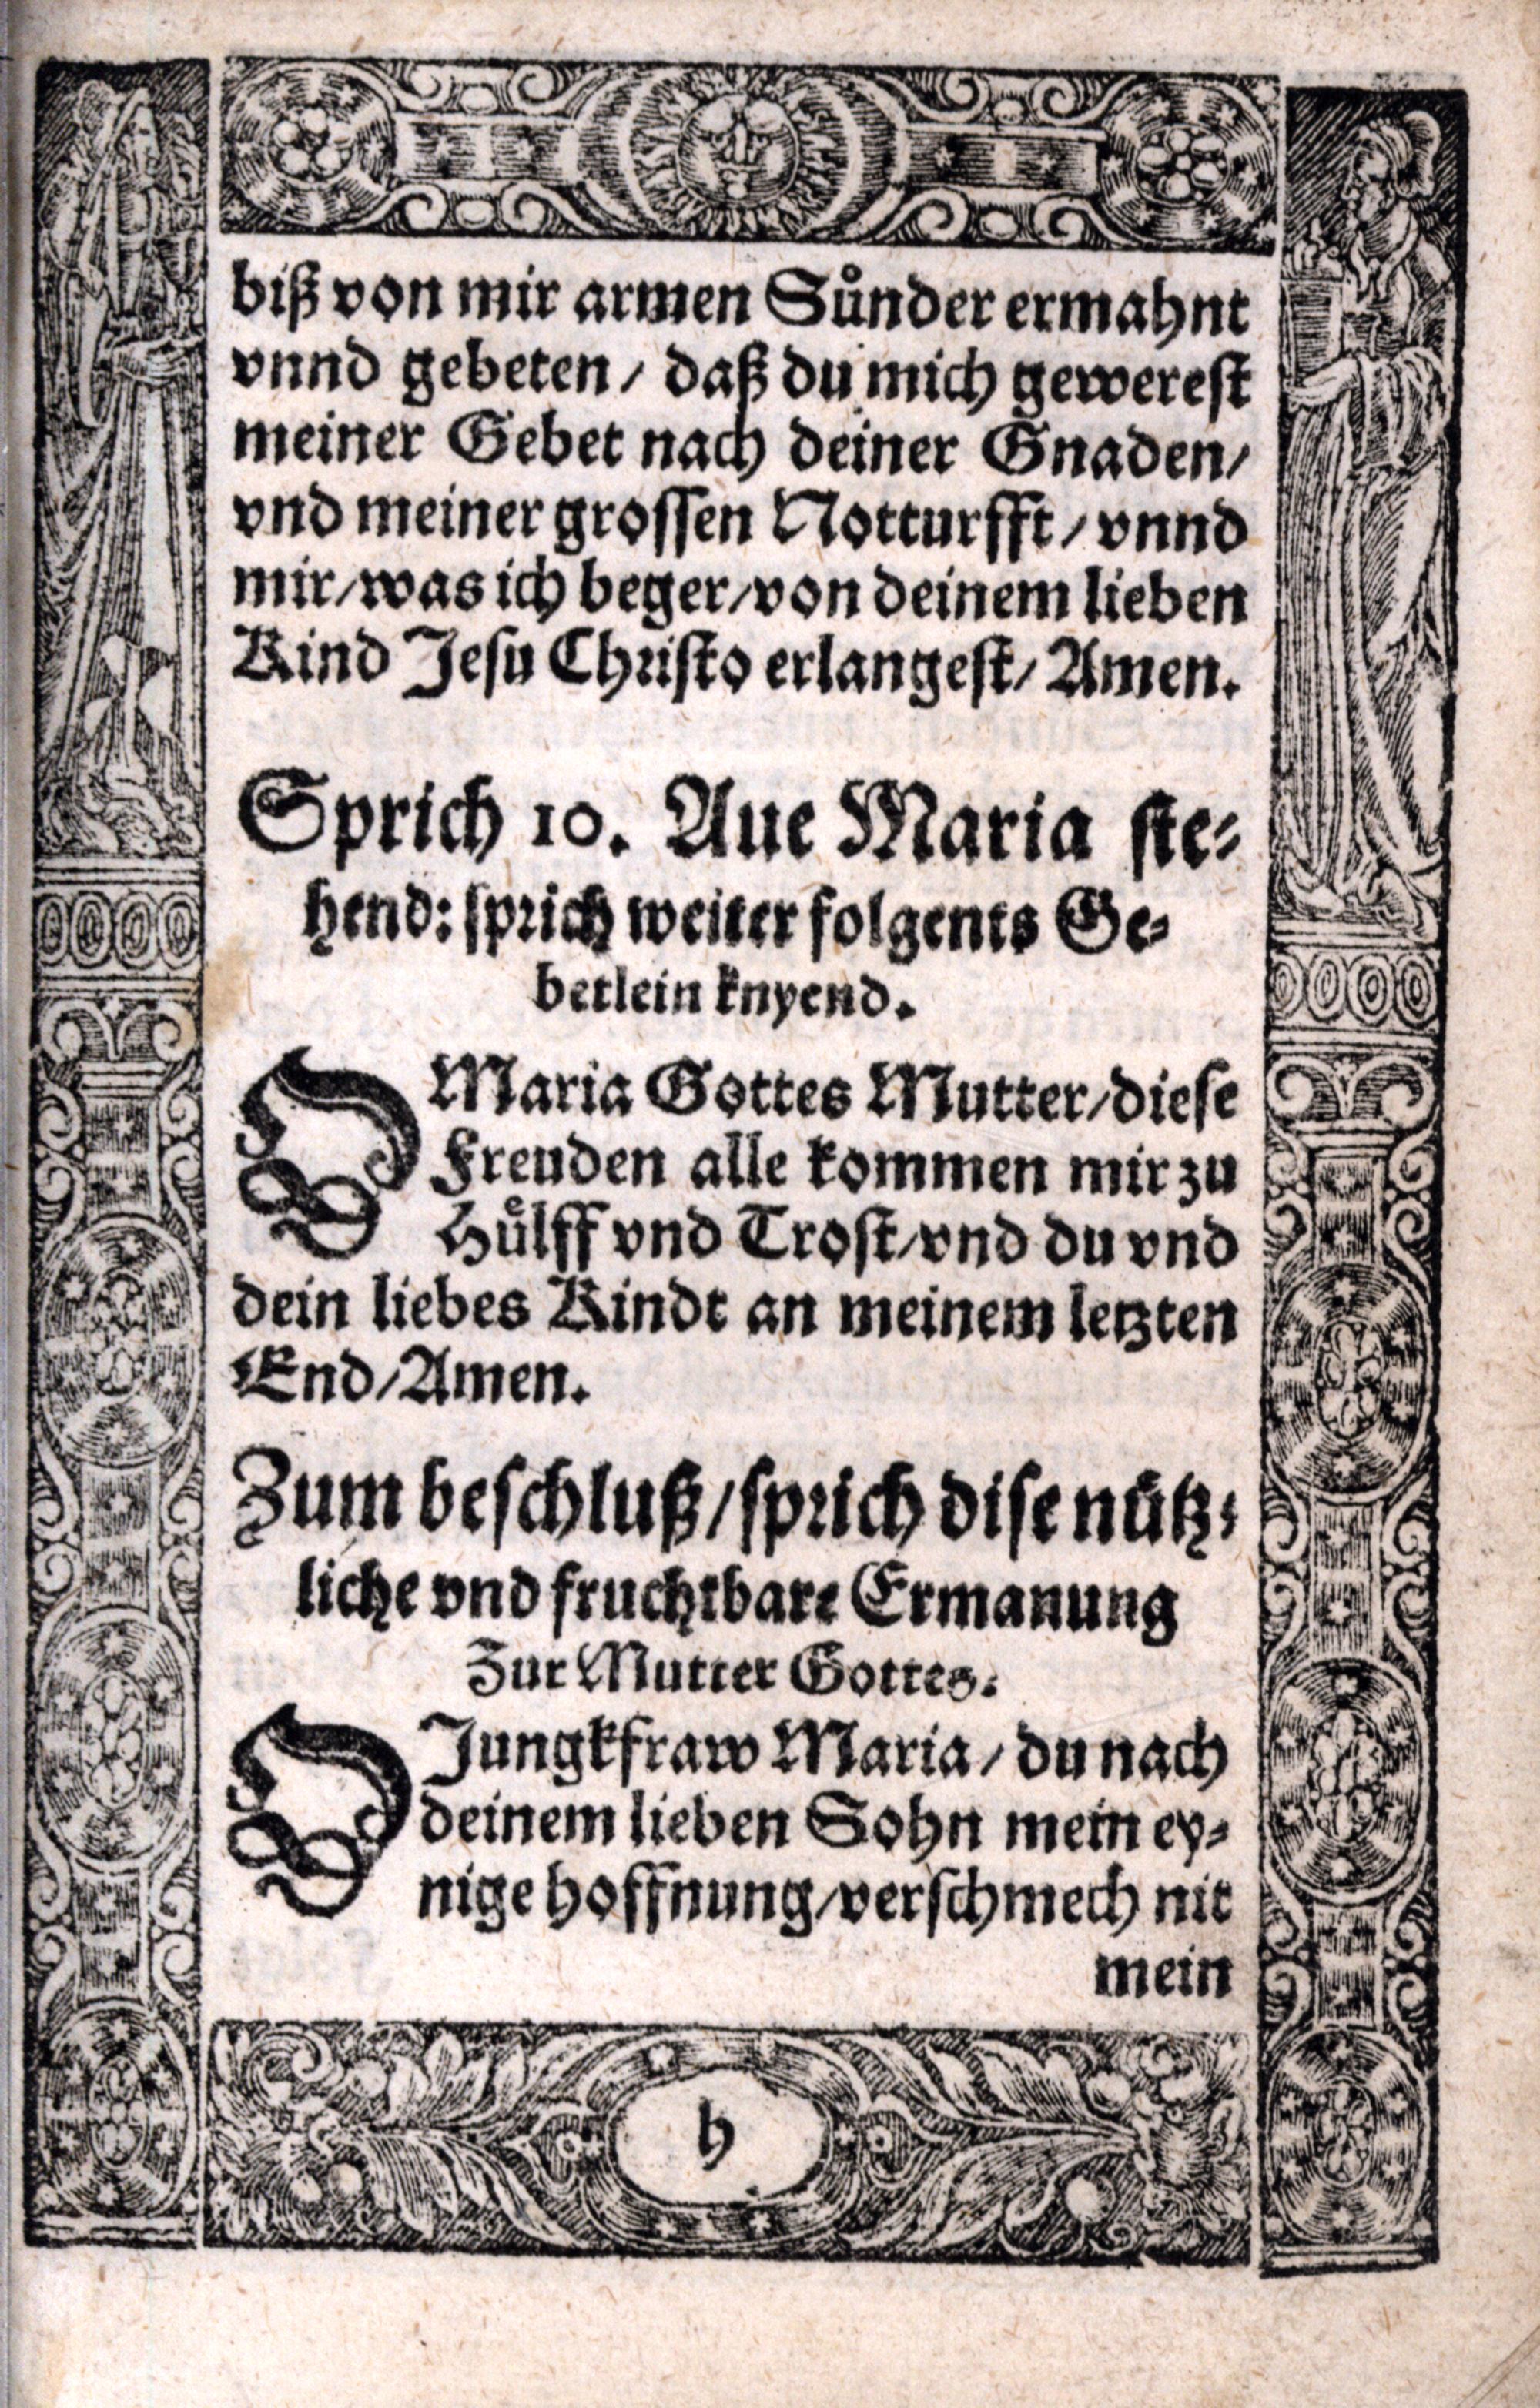 biß von mir armen Sůnder ermahnt
vnnd gebeten / daß du mich gewerest
meiner Gebet nach deiner Gnaden /
vnd meiner grossen Notturfft / vnnd
mir / was ich beger / von deinem lieben
Kind Jesu Christo erlangest / Amen.
Sprich 10. Aue Maria ste-
hend: sprich weiter folgents Ge-
betlein knyend.
O Maria Gottes Mutter / diese
Freuden alle kommen mir zu
Hůlff vnd Trost / vnd du vnd
dein liebes Kindt an meinem letzten
End / Amen.
Zum beschluß / sprich dise nütz-
liche vnd fruchtbare Ermanung
Zur Mutter Gottes.
O Jungkfraw Maria / du nach
deinem lieben Sohn mein ey-
nige hoffnung / verschmech nit
mein
h